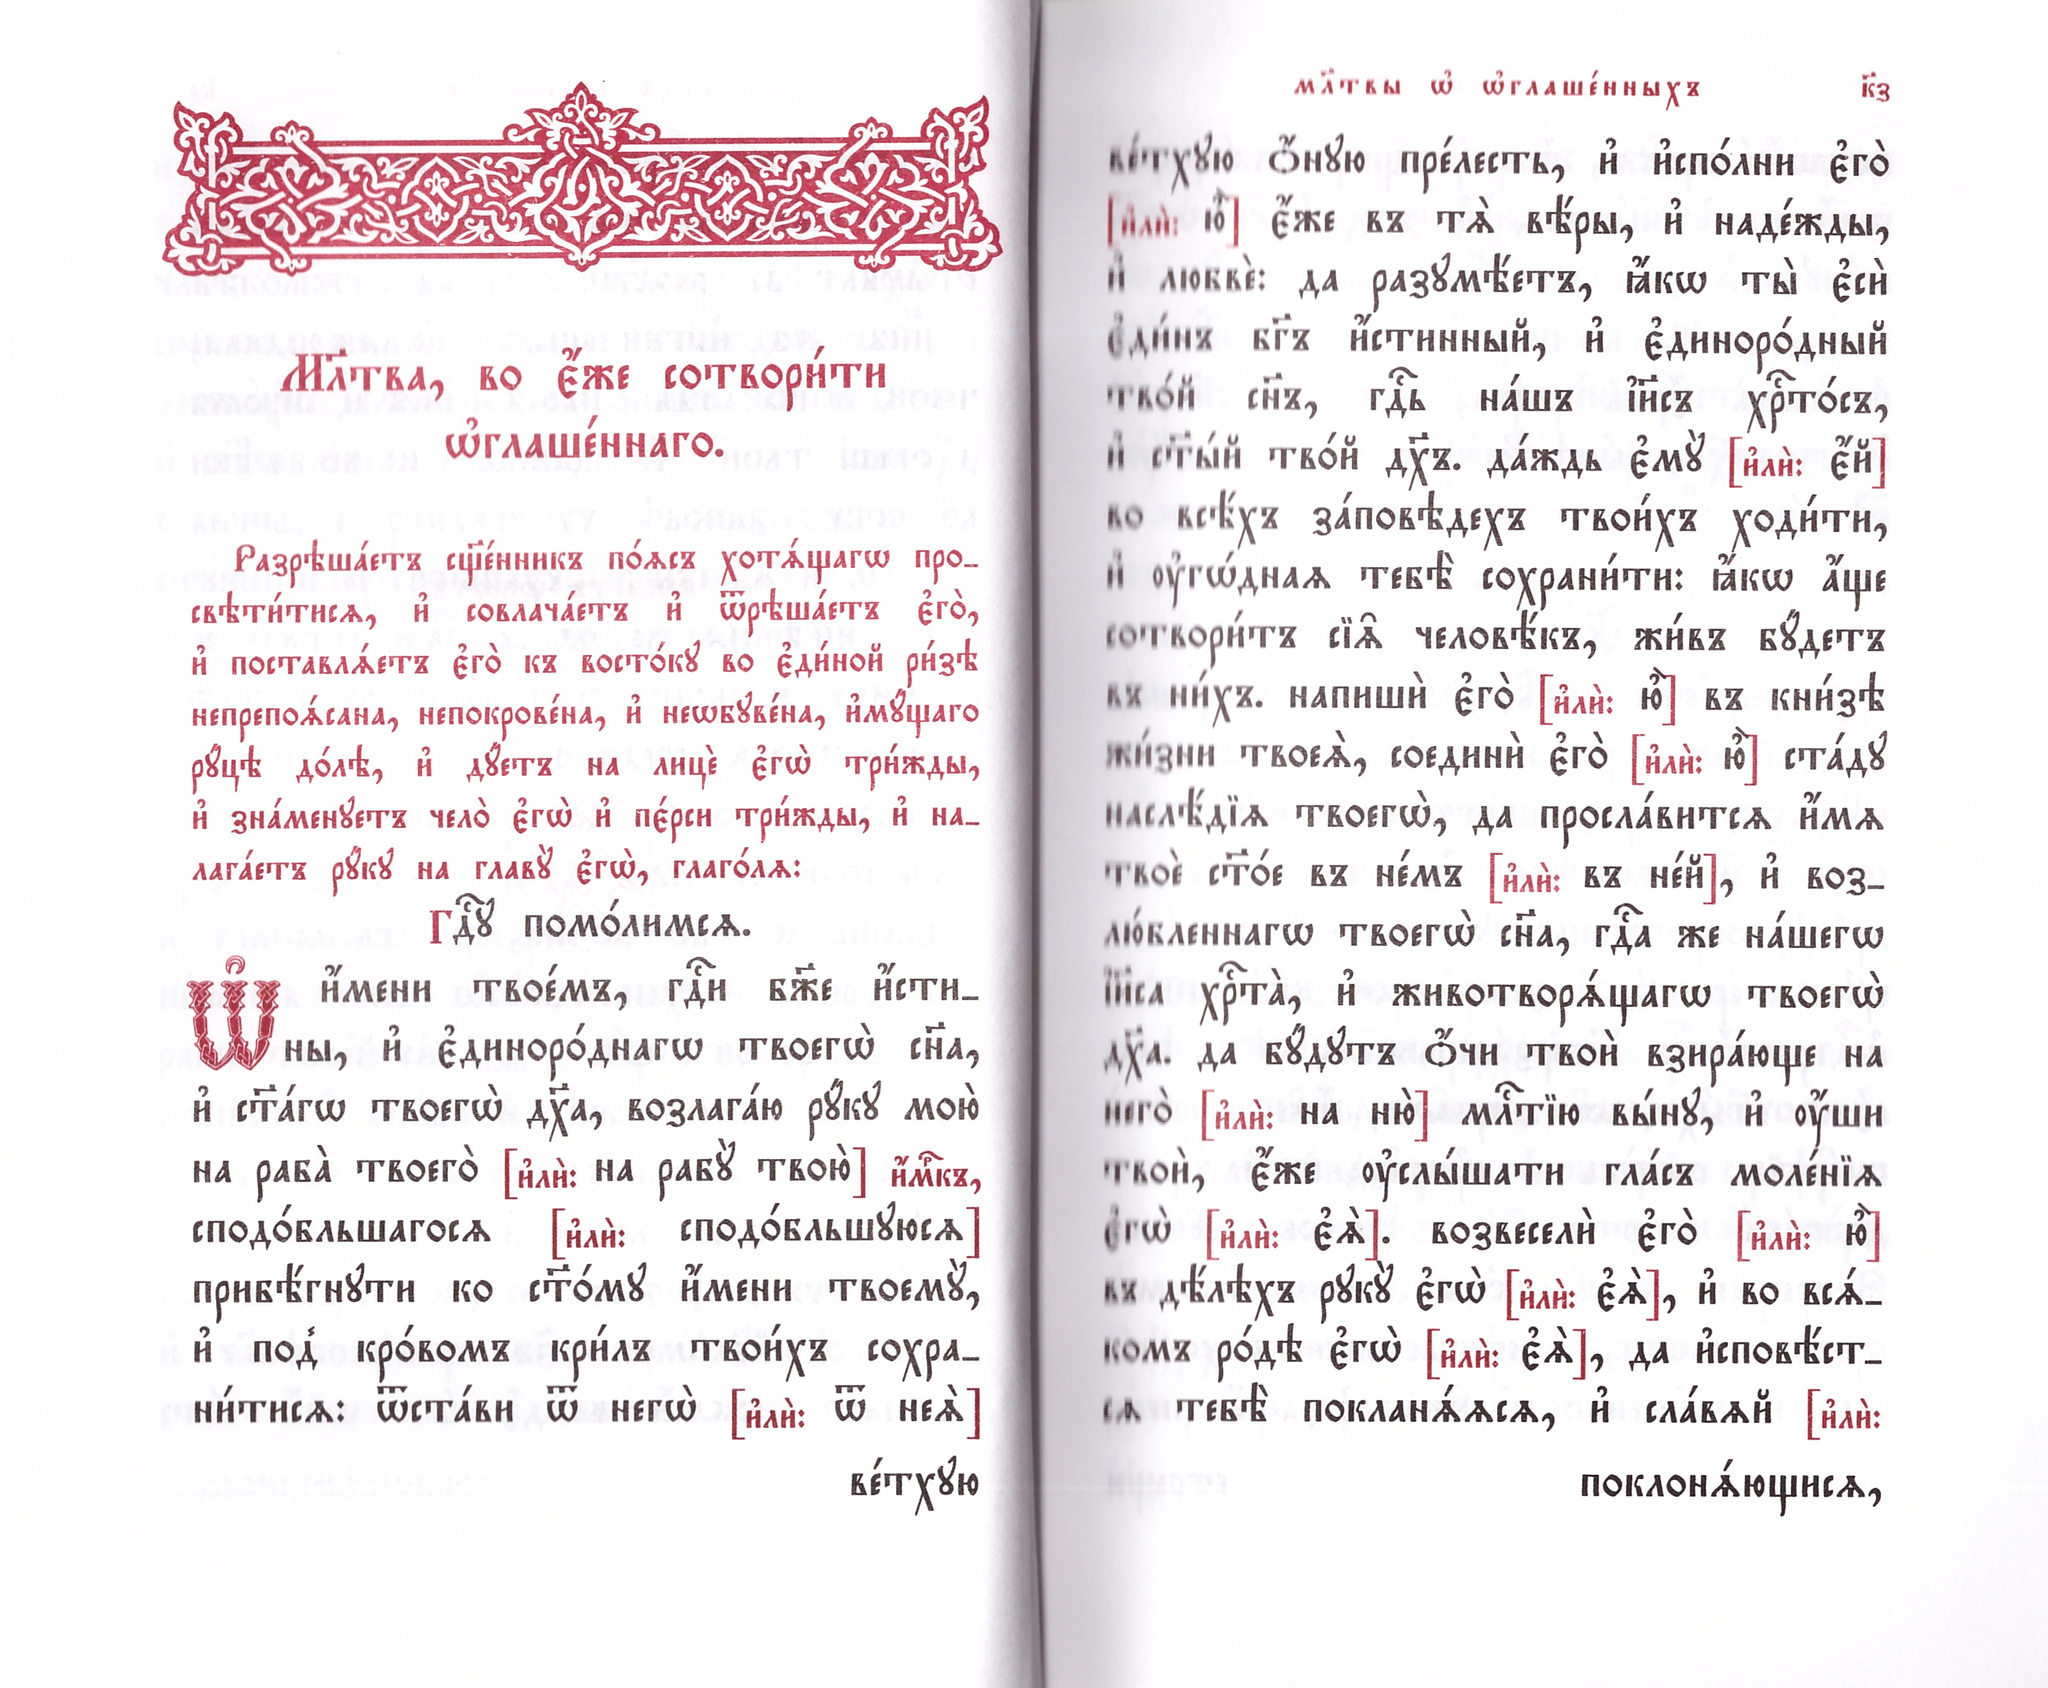 Мл҃тва, во є҆́же сотвори́ти
ѡ҆глаше́ннаго.
Разрѣша́етъ сщ҃е́нникъ по́ѧсъ хотѧ́щагѡ про-
свѣти́тисѧ, и҆ совлача́етъ и҆ ѿрѣша́етъ є҆го̀,
и҆ поставлѧ́етъ є҆го̀ къ восто́кꙋ во є҆ди́ной ри́зѣ
непрепоѧ́сана, непокрове́на, и҆ неѡбꙋве́на, и҆мꙋ́щаго
рꙋ́цѣ до́лѣ, и҆ дꙋ́етъ на лицѐ є҆гѡ̀ три́жды,
и҆ зна́менꙋетъ чело̀ є҆гѡ̀ и҆ пе́рси три́жды, и҆ на-
лага́етъ рꙋ́кꙋ на главꙋ̀ є҆гѡ̀, глаго́лѧ:
Гдⷭ҇ꙋ помо́лимсѧ.
Ѡ҆ и҆́мени твое́мъ, гдⷭ҇и бж҃е и҆́сти-
ны, и҆ є҆диноро́днагѡ твоегѡ̀ сн҃а,
и҆ ст҃а́гѡ твоегѡ̀ дх҃а, возлага́ю рꙋ́кꙋ мою̀
на раба̀ твоего̀ [и҆лѝ: на рабꙋ̀ твою̀] и҆́мⷬ҇къ,
сподо́бльшагосѧ [и҆лѝ: сподо́бльшꙋюсѧ]
прибѣ́гнꙋти ко ст҃о́мꙋ и҆́мени твоемꙋ̀,
и҆ под̾ кро́вомъ кри́лъ твои́хъ сохра-
ни́тисѧ: ѿста́ви ѿ негѡ̀ [и҆лѝ: ѿ неѧ̀]
ве́тхꙋю
мл҃твы ѡ҆ ѡ҆глаше́нныхъ к҃з
ве́тхꙋю ѻ҆́нꙋю пре́лесть, и҆ и҆спо́лни є҆го̀
[и҆лѝ: ю҆̀] є҆́же въ тѧ̀ вѣ́ры, и҆ наде́жды,
и҆ любвѐ: да разꙋмѣ́етъ, ꙗ҆́кѡ ты̀ є҆сѝ
є҆ди́нъ бг҃ъ и҆́стинный, и҆ є҆диноро́дный
тво́й сн҃ъ, гдⷭ҇ь на́шъ і҆и҃съ хрⷭ҇то́съ,
и҆ ст҃ы́й тво́й дх҃ъ. да́ждь є҆мꙋ̀ [и҆лѝ: є҆́й]
во всѣ́хъ за́повѣдехъ твои́хъ ходи́ти,
и҆ ᲂу҆гѡ́днаѧ тебѣ̀ сохрани́ти: ꙗ҆́кѡ а҆́ще
сотвори́тъ сїѧ̑ человѣ́къ, жи́въ бꙋ́детъ
въ ни́хъ. напишѝ є҆го̀ [и҆лѝ: ю҆̀] въ кни́зѣ
жи́зни твоеѧ̀, соединѝ є҆го̀ [и҆лѝ: ю҆̀] ста́дꙋ
наслѣ́дїѧ твоегѡ̀, да просла́витсѧ и҆́мѧ
твоѐ ст҃о́е въ не́мъ [и҆лѝ: въ не́й], и҆ воз-
лю́бленнагѡ твоегѡ̀ сн҃а, гдⷭ҇а же на́шегѡ
і҆и҃са хрⷭ҇та̀, и҆ животворѧ́щагѡ твоегѡ̀
дх҃а. да бꙋ́дꙋтъ ѻ҆́чи твоѝ взира́юще на
него̀ [и҆лѝ: на ню̀] млⷭ҇тїю вы́нꙋ, и҆ ᲂу҆́ши
твоѝ, є҆́же ᲂу҆слы́шати гла́съ моле́нїѧ
є҆гѡ̀ [и҆лѝ: є҆ѧ̀]. возвеселѝ є҆го̀ [и҆лѝ: ю҆̀]
въ дѣ́лѣхъ рꙋкꙋ̀ є҆гѡ̀ [и҆лѝ: є҆ѧ̀], и҆ во всѧ́-
комъ ро́дѣ є҆гѡ̀ [и҆лѝ: є҆ѧ̀], да и҆сповѣ́ст-
сѧ тебѣ̀ покланѧ́ѧсѧ, и҆ сла́вѧй [и҆лѝ:
поклонѧ́ющисѧ,